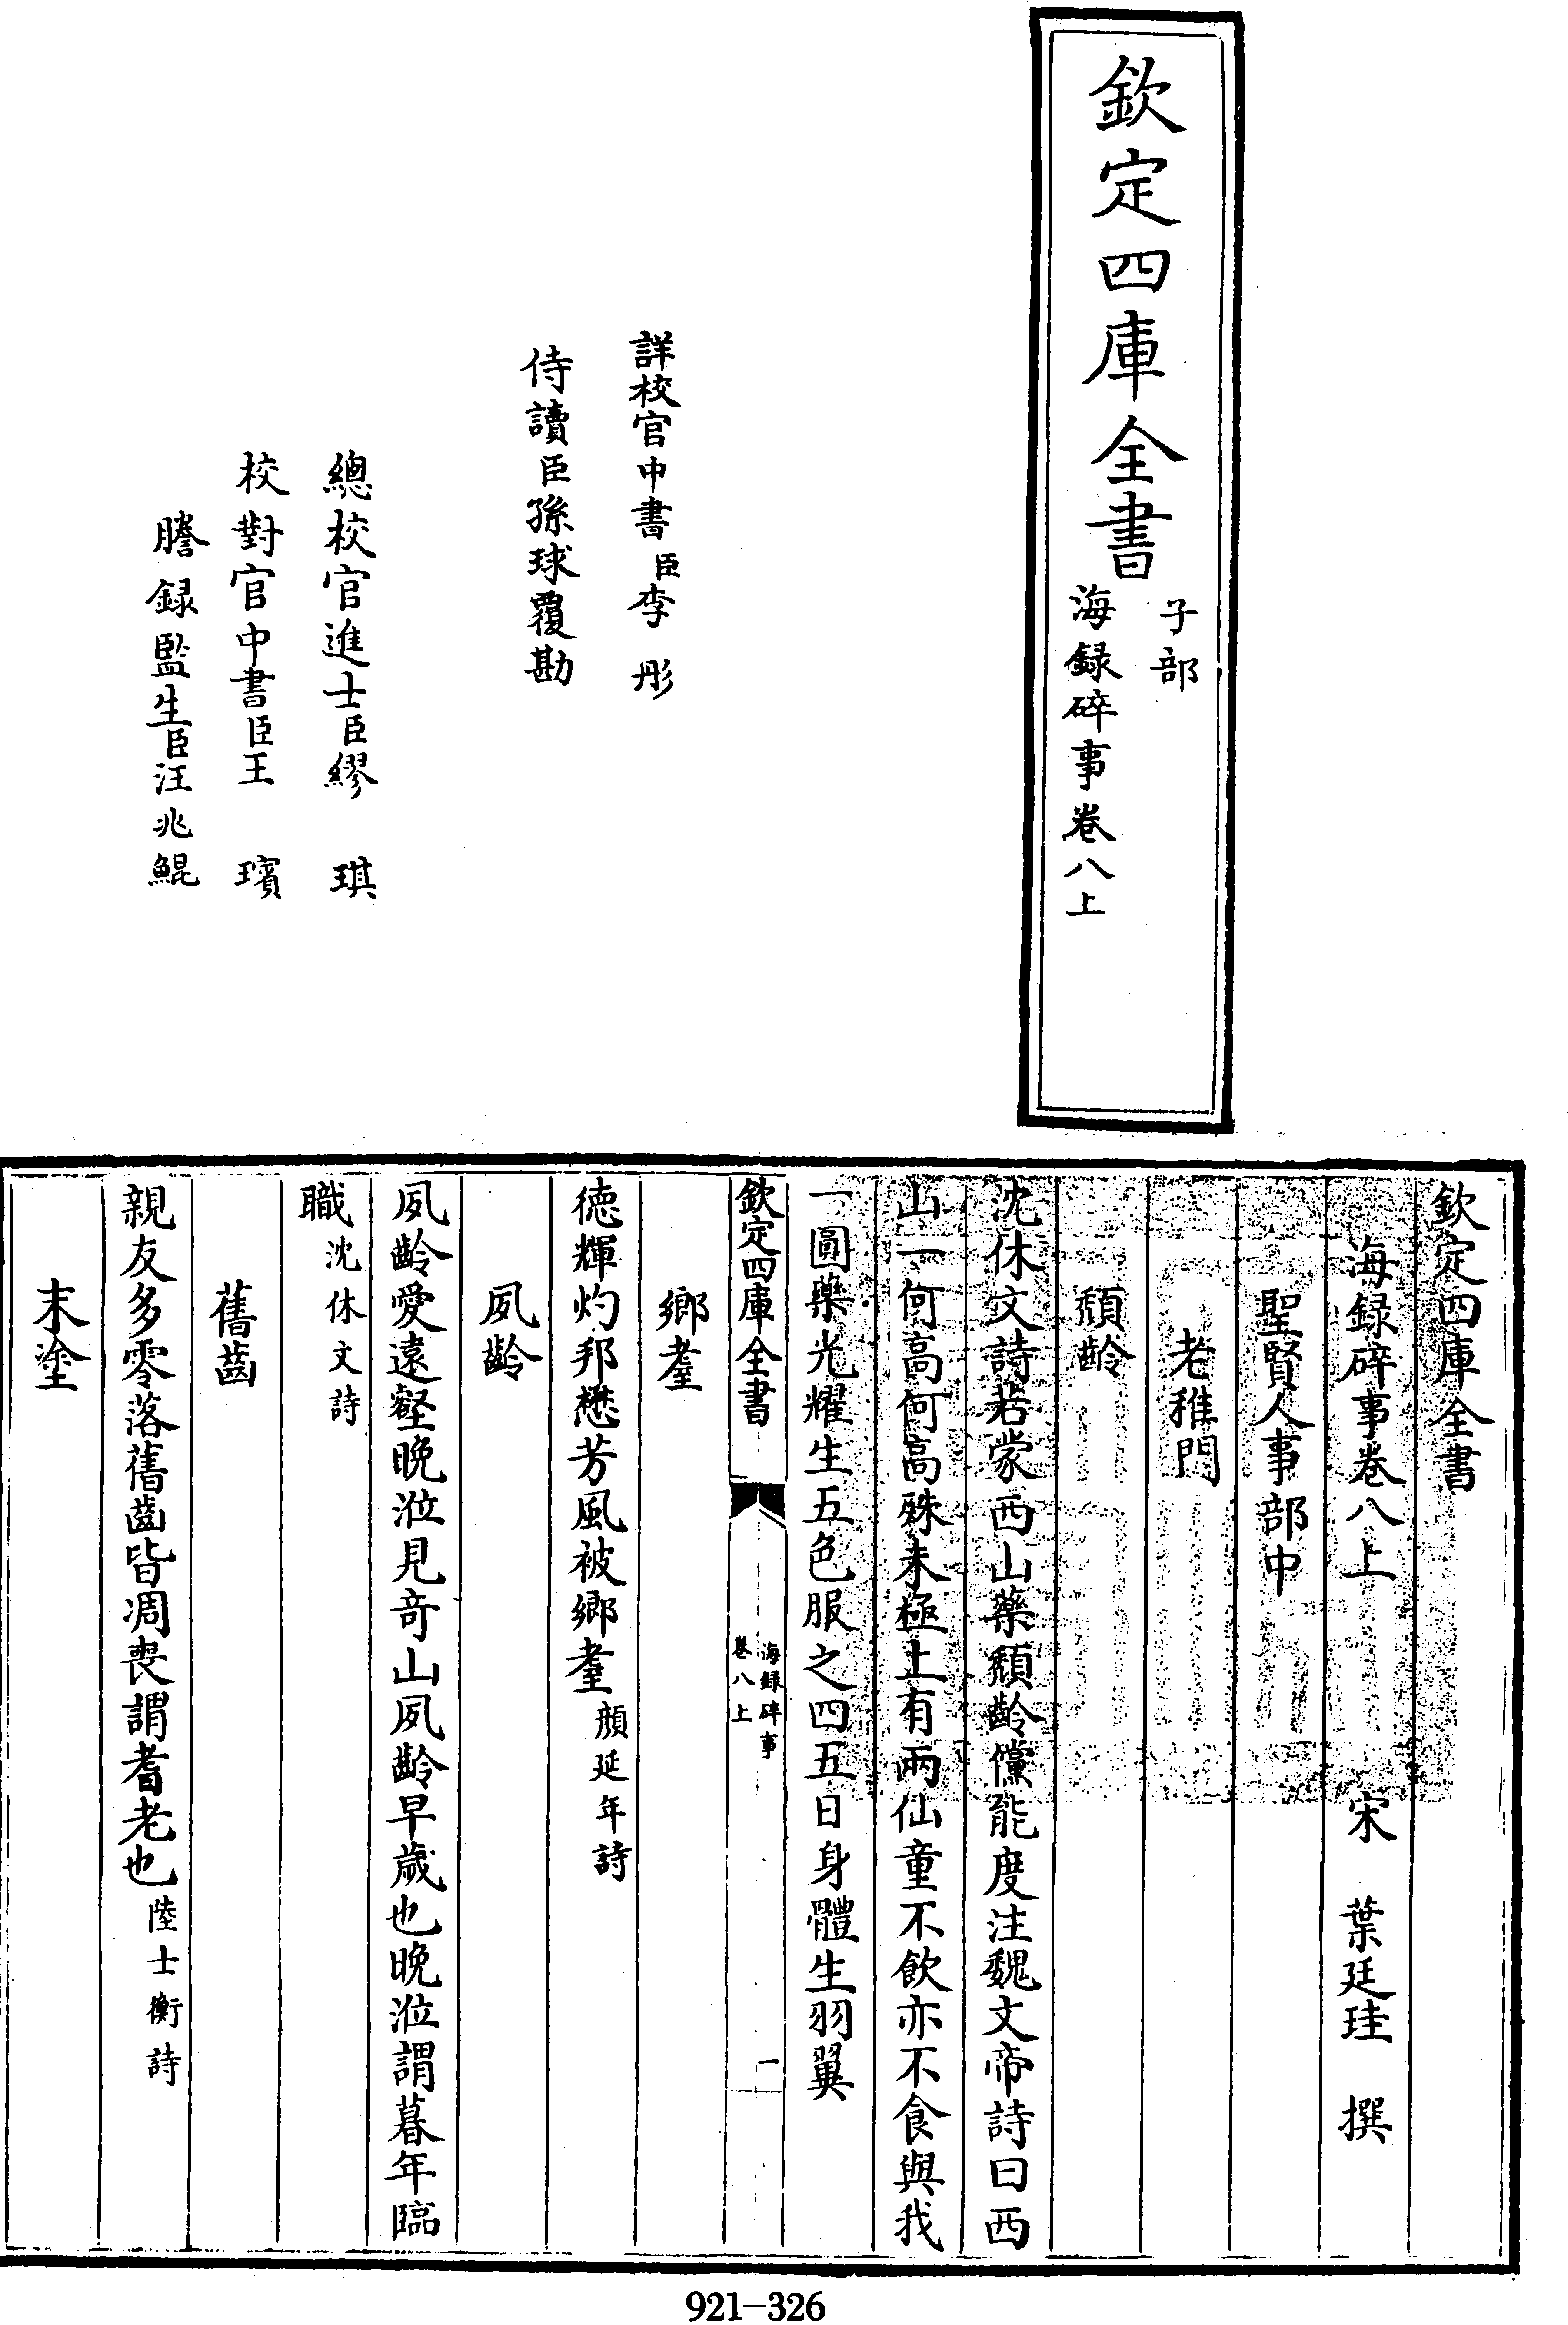 欽定四庫全書
子部
海録碎事卷八上
詳校官中書臣李彤
侍讀臣孫球覆勘
總校官進士臣繆琪
校對官中書臣王璸
謄録監生臣汪兆鯤
欽定四庫全書
海録碎事卷八上
宋 葉廷珪 撰
聖賢人事部中
老稚門
頽齡
沈休文詩若蒙西山藥頽齡儻能度注魏文帝詩曰西
山一何高何高殊未極上有兩仙童不飲亦不食與我
一圓藥光耀生五色服之四五日身體生羽翼
欽定四庫全書
海録碎事
卷八上
一
鄉耋
德輝灼邦懋芳風被鄉耋顔延年詩
夙齡
夙齡愛遠壑晚涖見竒山夙齡早歲也晚涖謂暮年臨
職沈休文詩
舊齒
親友多零落舊齒皆凋喪謂耆老也陸士衡詩
末塗
921-326